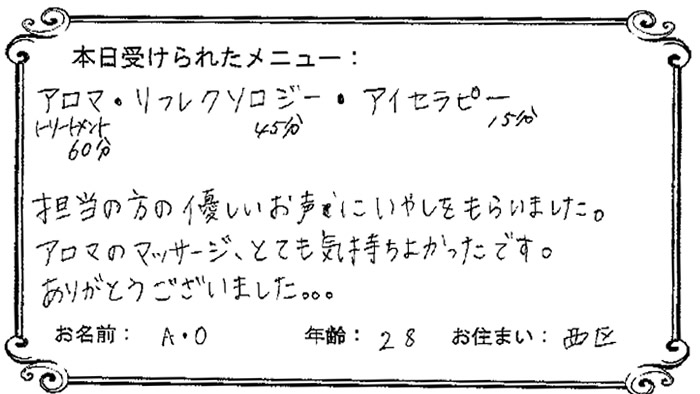 本日受けられたメニュー：
アロマ・リフレクソロジー・アイセラピー
トリートメント 45分 15分
60分
担当の方の優しいお声にいやしをもらいました。
アロマのマッサージ、とても気持ちよかったです。
ありがとうございました。。。
お名前： A・O 年齢： 28 お住まい： 西区